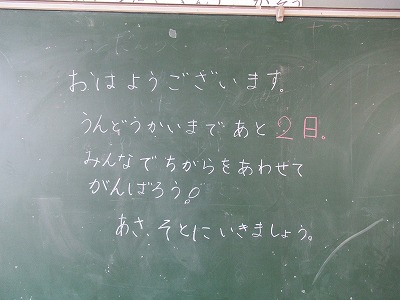 おはようございます。
うんどうかいまであと2日。
みんなでちからをあわせて
がんばろう!
あさ、そとにいきましょう。